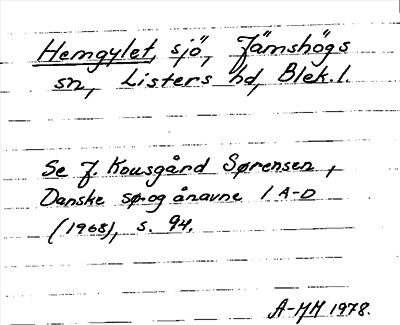 Hemgylet, sjö, Jämshögs
sn, Listers hd, Blek. l.
Se J. Kousgård Sørensen,
Danske sø- og ånavne 1 A-D
(1968), s. 94.
A-MM 1978.